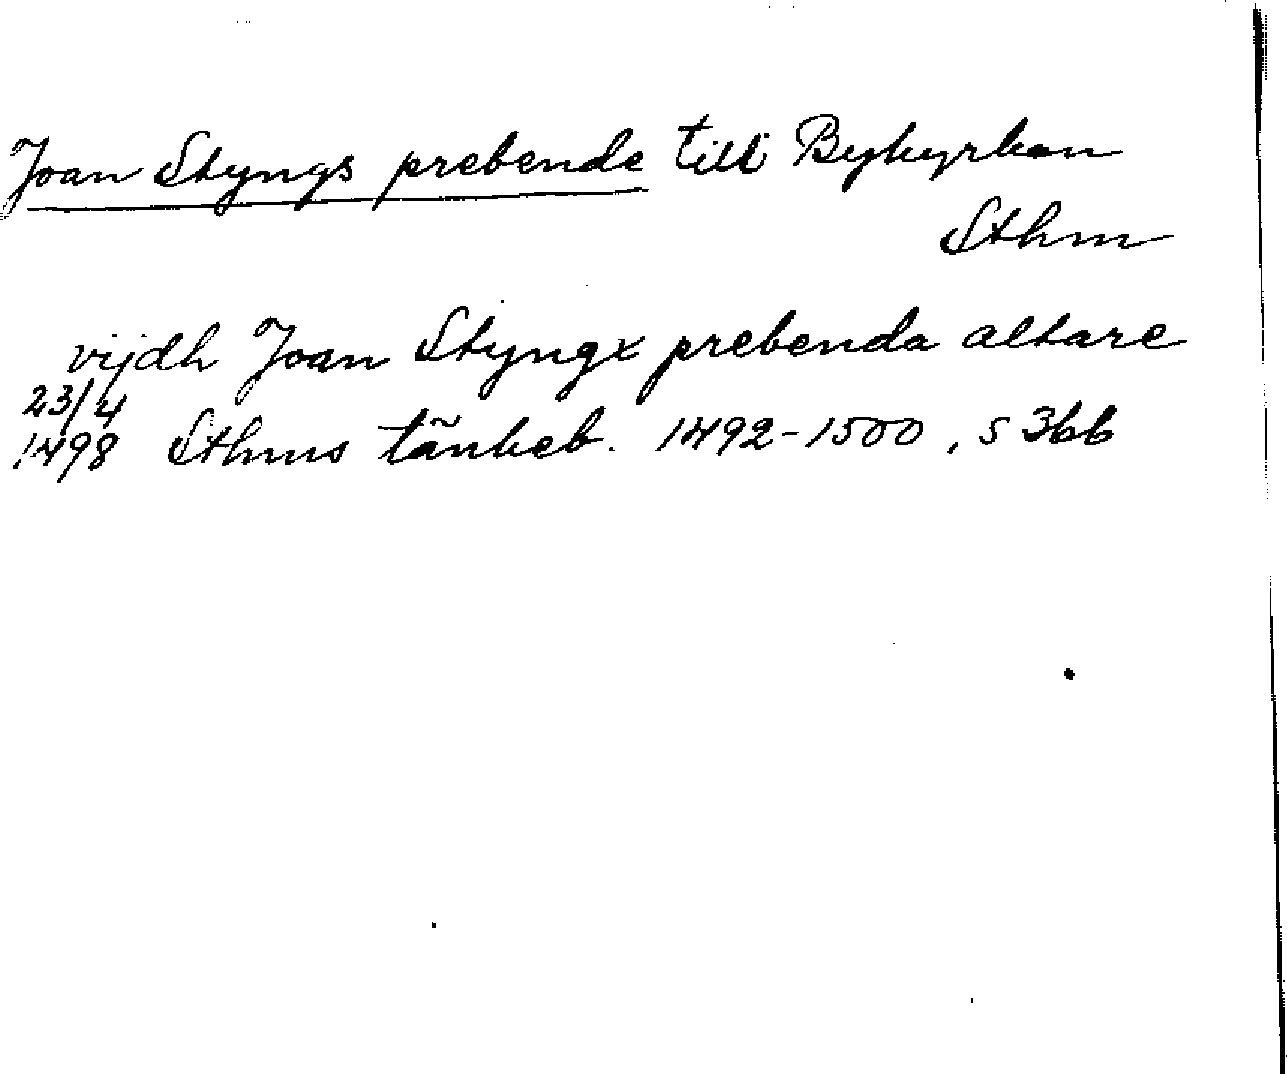 Joan Styngs prebende till Bykyrkan
Sthm
vijdh Joan Styngx prebenda altare
23/4
1498 Sthms tänkeb. 1492-1500, s 366